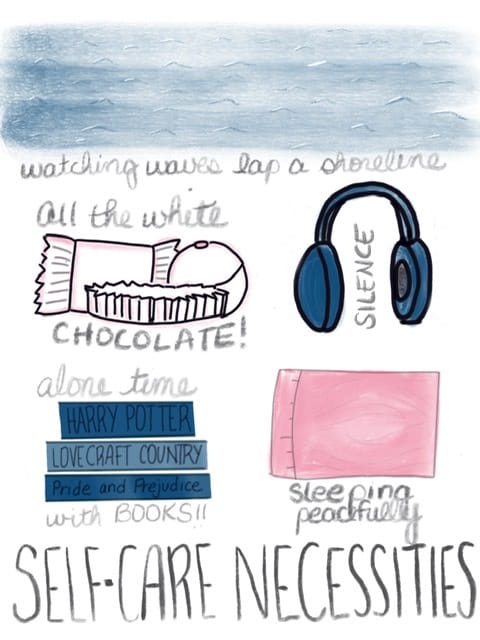 watching waves lap a shoreline
all the white
CHOCOLATE!
SILENCE
alone time
HARRY POTTER
LOVECRAFT COUNTRY
Pride and Prejudice
with BOOKS!!
sleeping
peacefully
SELF-CARE NECESSITIES